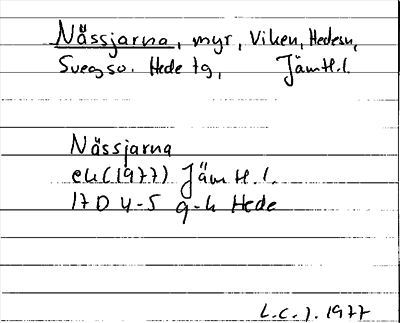 Nässjarna, myr, Viken, Hedesn,
Svegs so. Hede tg, Jämtl.l.
Nässjarna
ek (1977) Jämtl.l.
17 D 4-5 g-h Hede
L.C.J. 1977